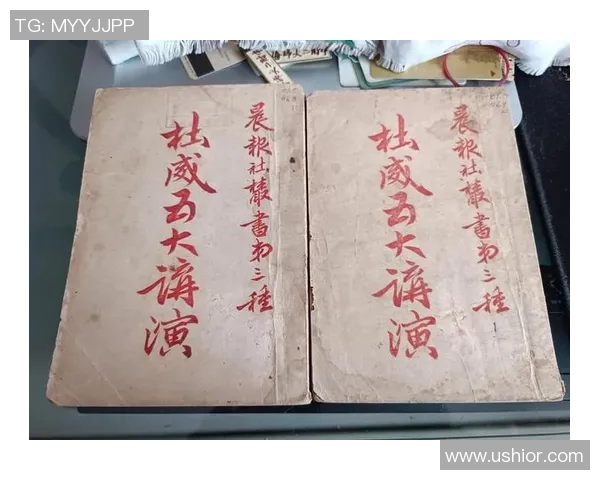 TG: MYYJJPP
晨報社叢書第三種
杜威五大講演
晨報社叢書第三種
杜威五大講演
www.ushior.com